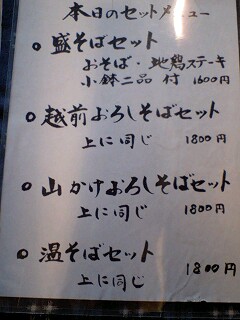 本日のセットメニュー
○ 盛そばセット
おそば・地鶏ステーキ
小鉢二品 付 1600円
○ 越前おろしそばセット
上に同じ 1800円
○ 山かけおろしそばセット
上に同じ 1800円
○ 温そばセット
上に同じ 1800円